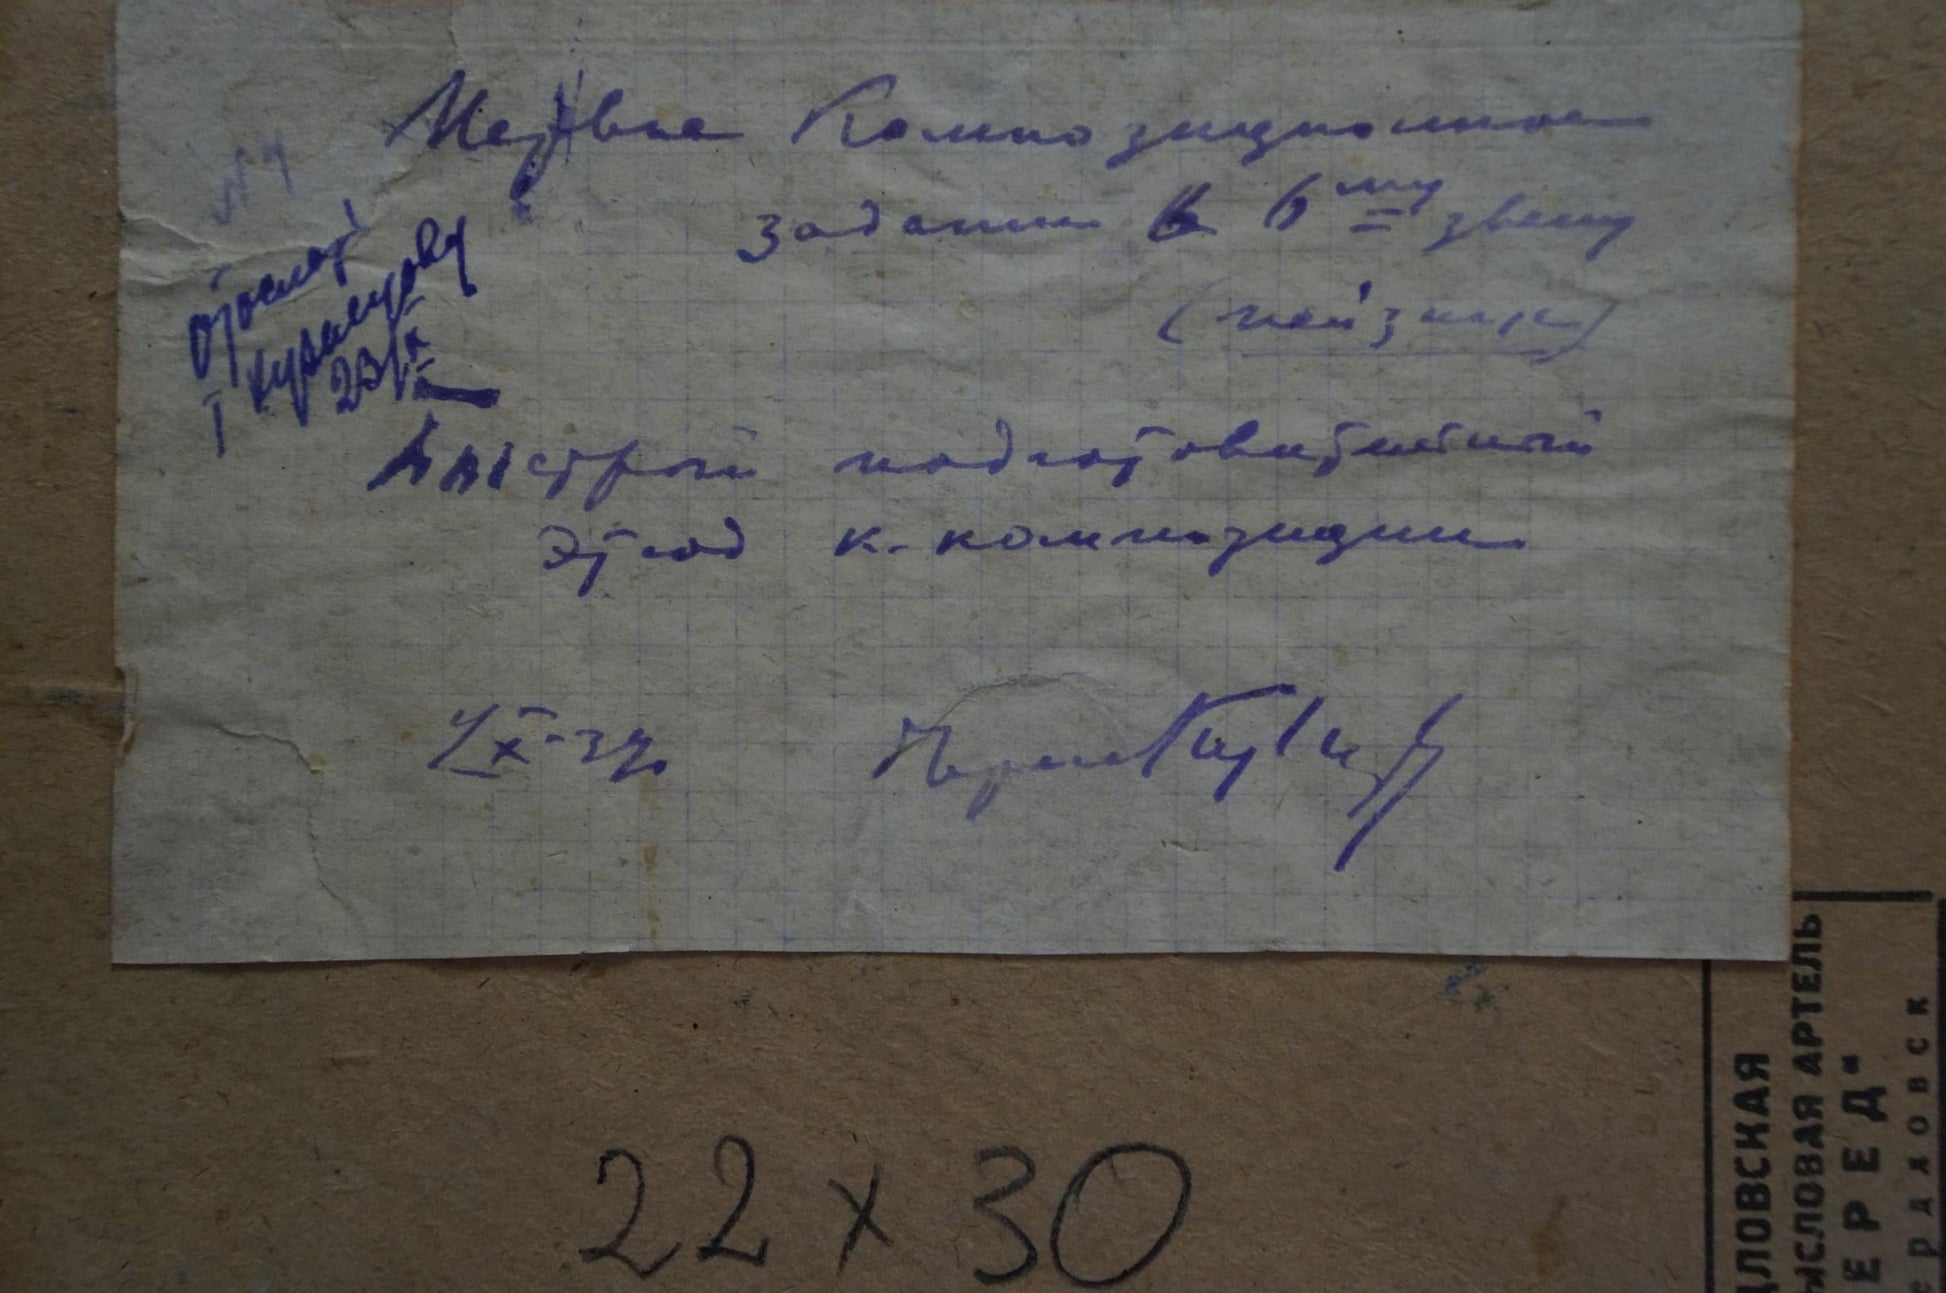 № 4
Первое Композиционное
задание к 6му звену
(пейзаж)
Отослать
Кузнецову
23/IX
Быстрый подготовительный
этюд к композиции
IX-37.
22 x 30
ДЛОВСКАЯ
ЫСЛОВАЯ АРТЕЛЬ
ЕРЕД"
ердловск